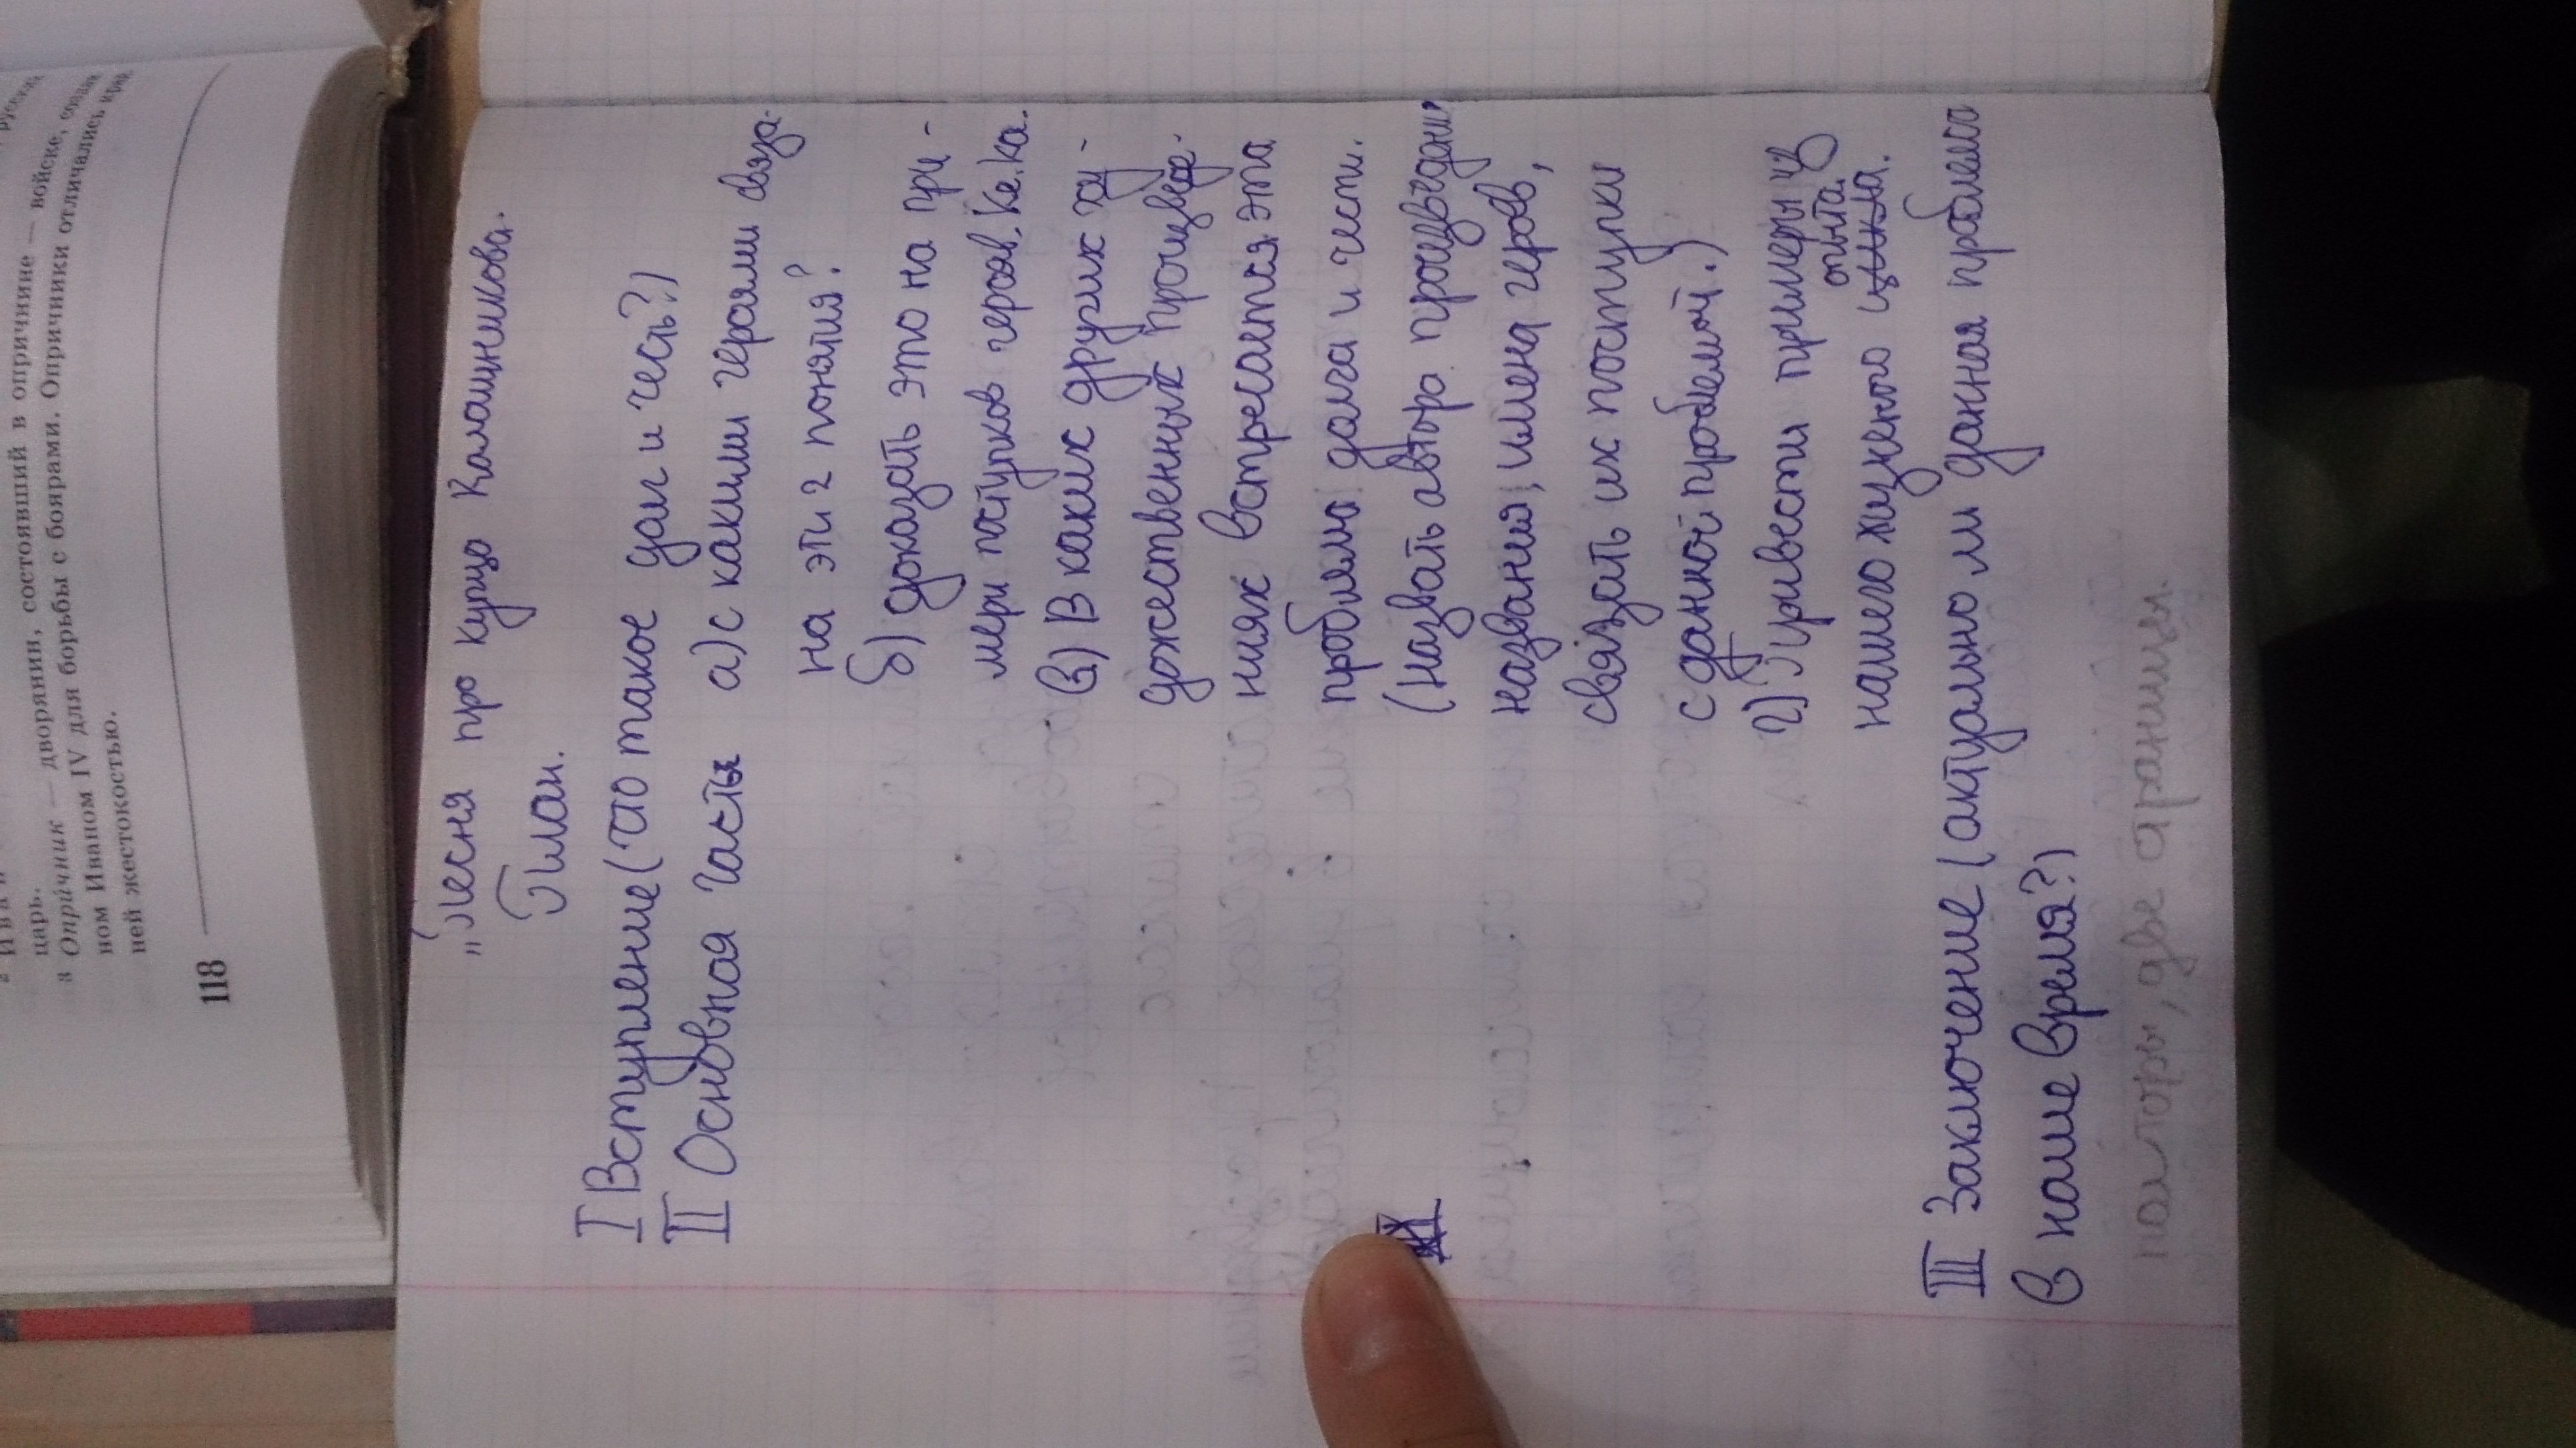 царь.
³ Опричник — дворянин, состоявший в опричнине — войске,
ном Иваном IV для борьбы с боярами. Опричники отличались
ней жестокостью.
118
„Песня про купца Калашникова.
План.
I Вступление (что такое долг и честь?)
II Основная часть а) с какими героями связа-
на эти 2 понятия?
б) доказать это на при-
мери поступков героев. Ке. Ка.
в) В каких других ху-
дожественных произведе-
ниях встречается эта
проблема долга и чести.
(назвать автора произведани
названия, имена героев,
связать их поступки
с данной проблемой.)
г) Привести примеры из
опыта.
нашего жизненого цикла.
III Заключение (актуально ли данная проблема
в наше время?)
полторы, две страницы.